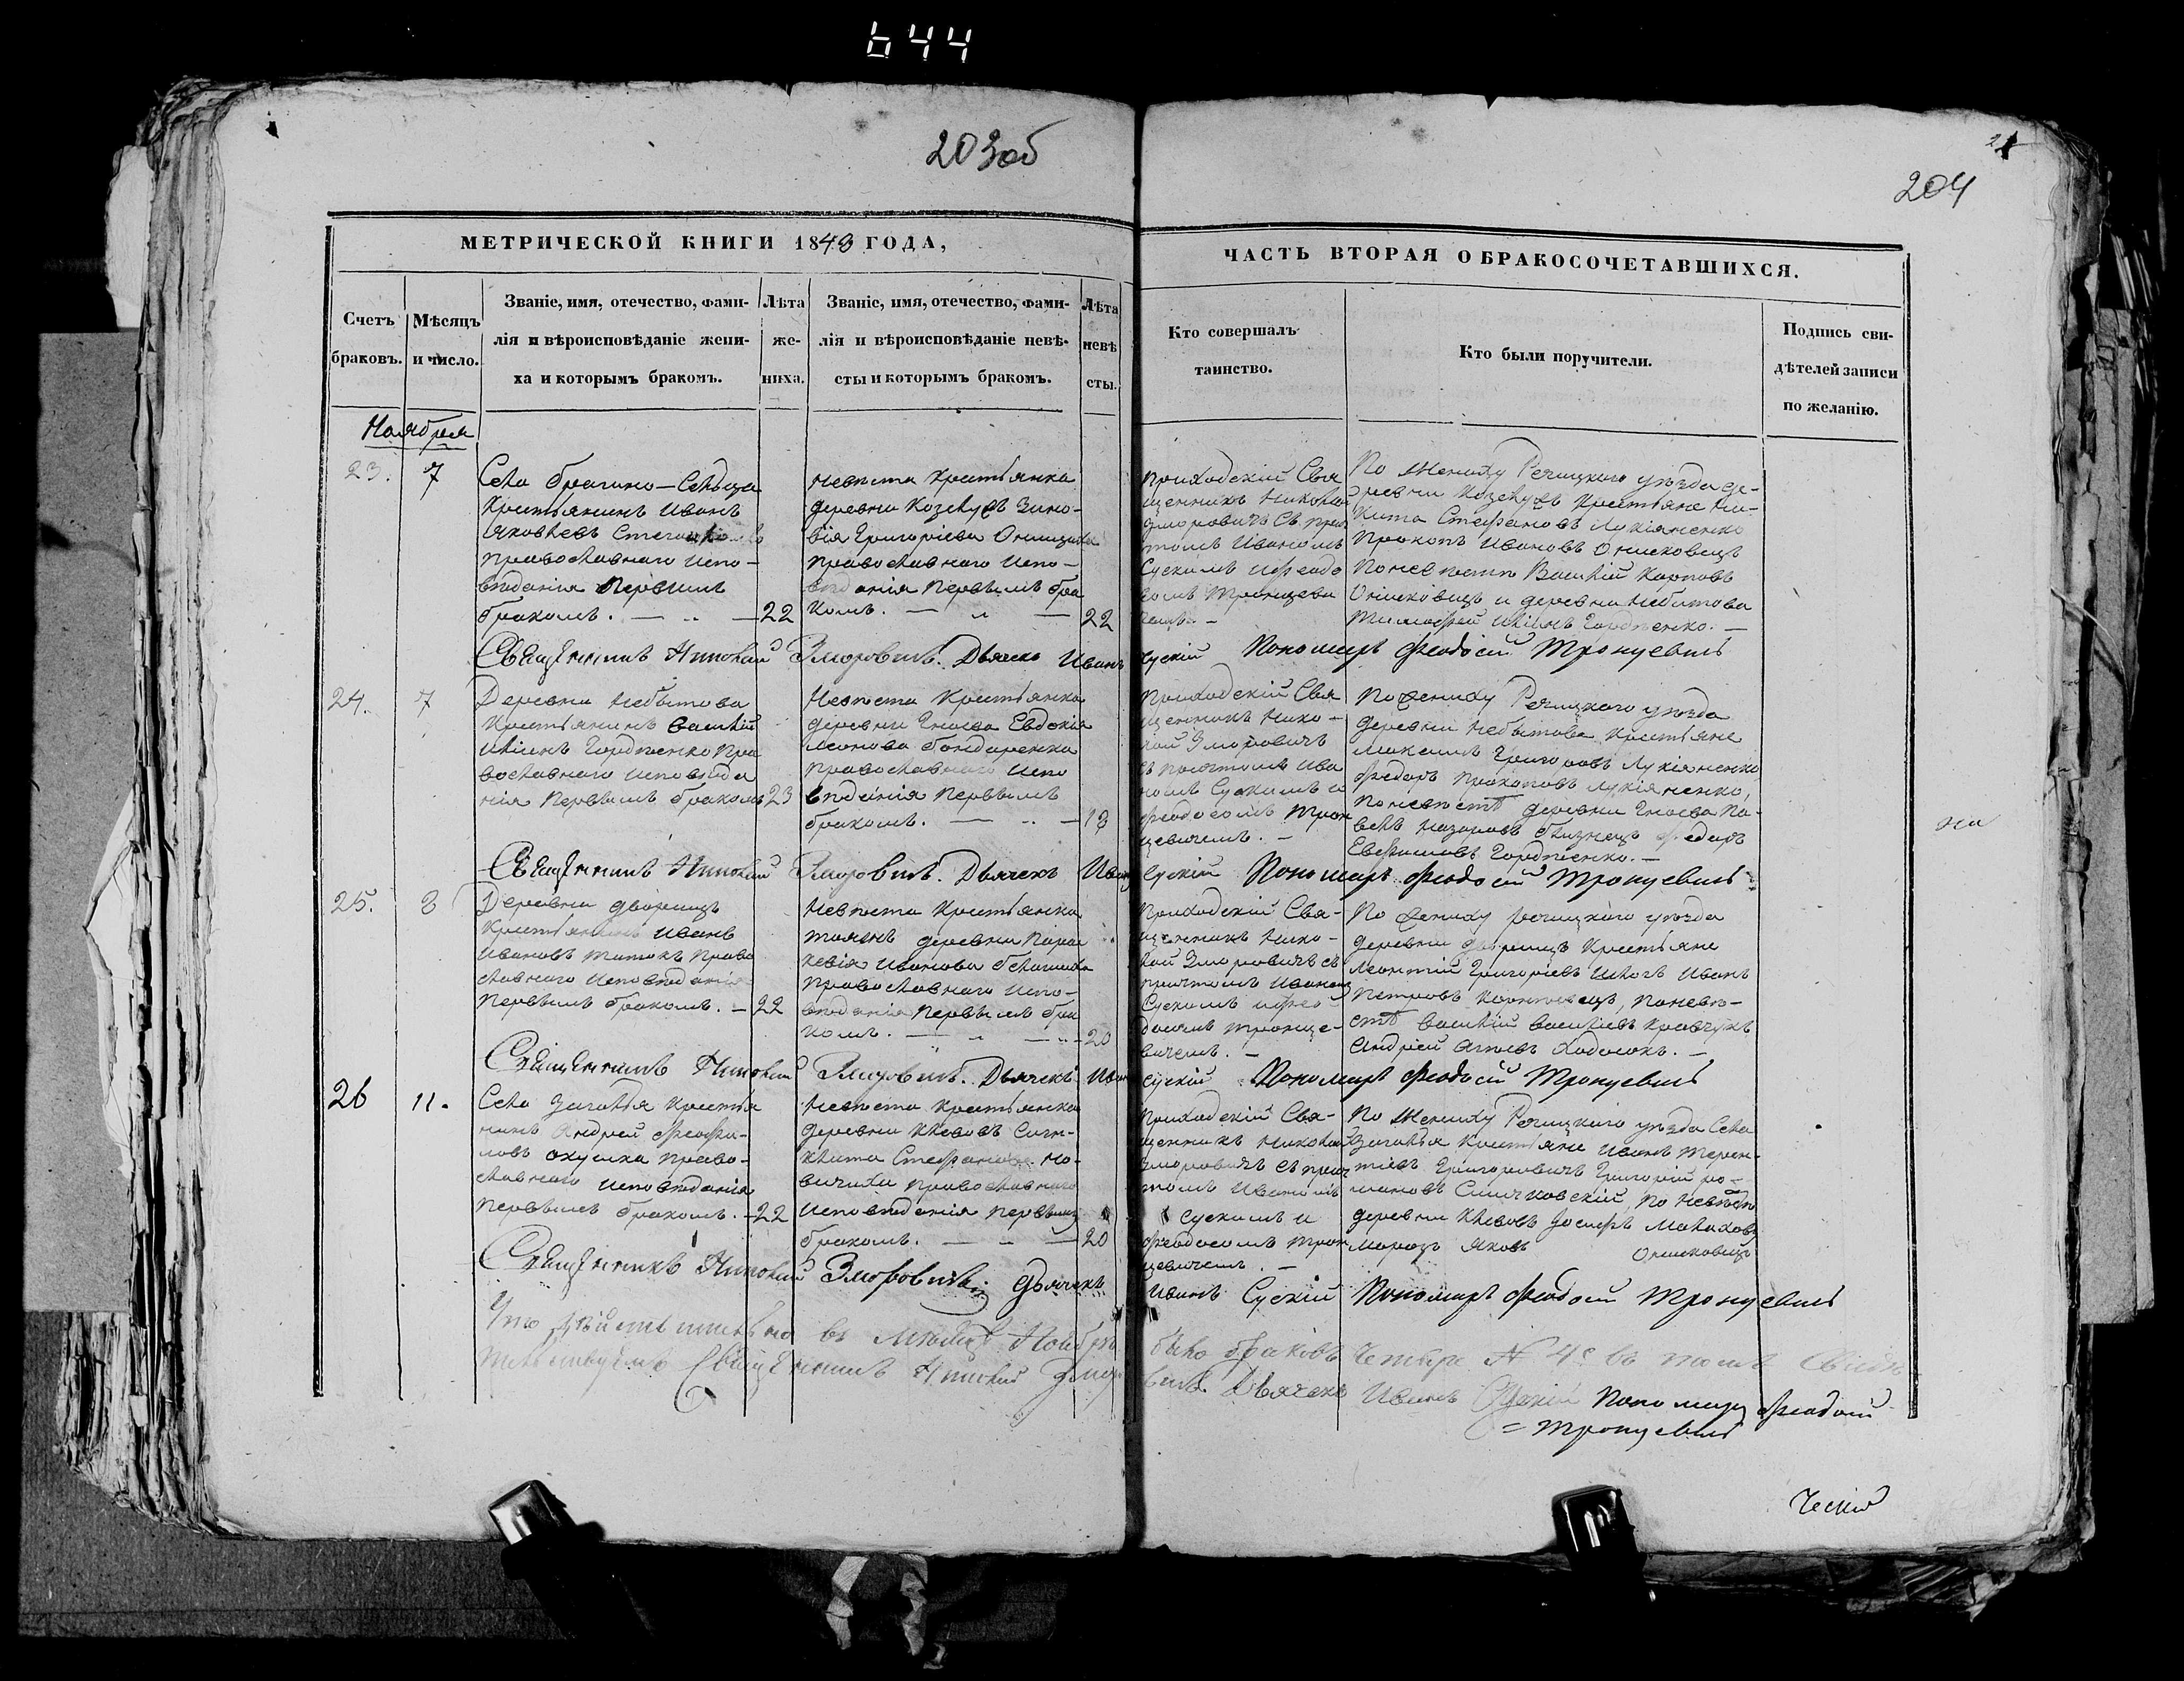 644
203об
204
МЕТРИЧЕСКОЙ КНИГИ 1843 ГОДА,
ЧАСТЬ ВТОРАЯ О БРАКОСОЧЕТАВШИХСЯ.
Счетъ
браковъ.
Мѣсяцъ
и число.
Званіе, имя, отечество, фами-
лія и вѣроисповѣданіе жени-
ха и которымъ бракомъ.
Лѣта
же-
ниха.
Званіе, имя, отечество, фами-
лія и вѣроисповѣданіе невѣ-
сты и которымъ бракомъ.
Лѣта
невѣ
сты.
Кто совершалъ
таинство.
Кто были поручители.
Подпись сви-
дѣтелей записи
по желанію.
Ноября
23.
7
Села Брагино-Сельца
Крестьянинъ Иванъ
Яковлевъ
православнаго испо-
вѣданія первымъ
бракомъ. — „ — 22
невѣста крестьянка
деревни Козелужъ Зино-
вія Григоріева
православнаго испо-
вѣданія первымъ бра
комъ. — „ — 22
Приходскій Свя
щенникъ Николай
Зморовичъ съ прич
томъ Иваномъ
Сускимъ и Феодо
сомъ Тронцеви
чемъ. —
По жениху Речицкого уѣзда де-
ревни Козелужъ Крестьяне Ни-
кита Стефановъ Лукіяненко
Прокопъ Ивановъ Онисковецъ
По невѣстѣ Василій Карповъ
Онисковецъ и деревни Небытова
Тимофей Ильинъ Гордѣенко. —
Священникъ Николай Зморовичъ. Дьячекъ Иванъ Сускій Пономарь Феодосій Тронцевичъ
24.
7
Деревни Небытова
Крестьянинъ Василій
Ильинъ Гордѣенко Пра
вославнаго исповѣда
нія первымъ бракомъ 23
Невѣста Крестьянка
деревни Гноева Евдокія
Леонова Бондаренка
православнаго испо
вѣденія первымъ
бракомъ. — „ — 18
Приходскій Свя
щенникъ Нико-
лай Зморовичъ
съ причтомъ Ива
номъ Сускимъ и
Феодосомъ Трон
цевичемъ. —
По жениху Речицкого уѣзда
деревни Небытова Крестьяне
Максимъ Григоровъ Лукіяненко
Федоръ Прокоповъ Лукіяненко,
По невѣстѣ деревни Гноева Па-
велъ Назаровъ Близнецъ Федоръ
Евфимовъ Гордѣенко. —
на
Священникъ Николай Зморовичъ. Дьячекъ Иванъ Сускій Пономарь Феодосій Тронцевичъ
25.
8
Деревни Дворищъ
Крестьянинъ Иванъ
Ивановъ Титокъ Право
славнаго исповѣданія
первымъ бракомъ. — 22
Невѣста Крестьянка
тояжъ деревни Парас
кевія Иванова
православнаго испо-
вѣданія первымъ бра
комъ. — „ — 20
Приходскій Свя-
щенникъ Нико-
лай Зморовичъ съ
причтомъ Иваномъ
Сускимъ и Фео-
досомъ Тронце-
вичемъ. —
По жениху речицкого уѣзда
деревни Дворищъ Крестьяне
Леонтій Григоріевъ Иванъ
Петровъ, По невѣ-
стѣ Василій Василіевъ Кравчукъ
Андрей Ходосокъ. —
Священникъ Николай Зморовичъ. Дьячекъ Иванъ Сускій Пономарь Феодосій Тронцевичъ
26
11.
Села Загалья Крестья
нинъ Андрей Феофи-
ловъ Окушка право-
славнаго исповѣданія
первымъ бракомъ. — 22
Невѣста крестьянка
деревни Хлевовъ Синк-
литa Стефанова
православнаго
исповѣданія первымъ
бракомъ. — „ — 20
Приходскій Свя-
щенникъ Николай
Зморовичъ съ прич
томъ Иваномъ
Сускимъ и
Феодосомъ Трон
цевичемъ. —
По жениху Речицкого уѣзда Села
Загалья Крестьяне Иванъ Терен-
тіевъ Григоровичъ Григорій Ро-
мановъ, По невѣстѣ
деревни Хлевовъ Іосифъ Малаховъ
Морозъ Яковъ Онисковецъ
Священникъ Николай Зморовичъ. Дьячекъ Иванъ Сускій Пономарь Феодосій Тронцевичъ
Что дѣйствительно въ мѣсяцѣ Ноябрѣ было браковъ четыре № 4е въ томъ свидѣ
тельствуемъ Священникъ Николай Зморовичъ. Дьячекъ Иванъ Сускій Пономарь Феодосій
Тронцевичъ